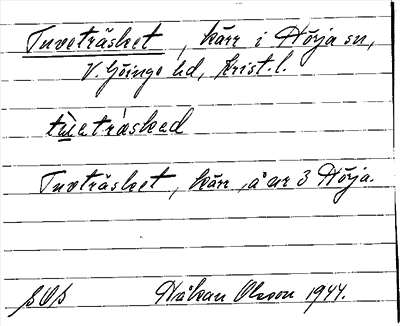 Tuveträsket, kärr i Hörja sn,
V. Göinge hd, Krist. l.
tu̲etrásked
Tuvträsket, kärr, å nr 3 Hörja.
SOS Håkan Olsson 1944.